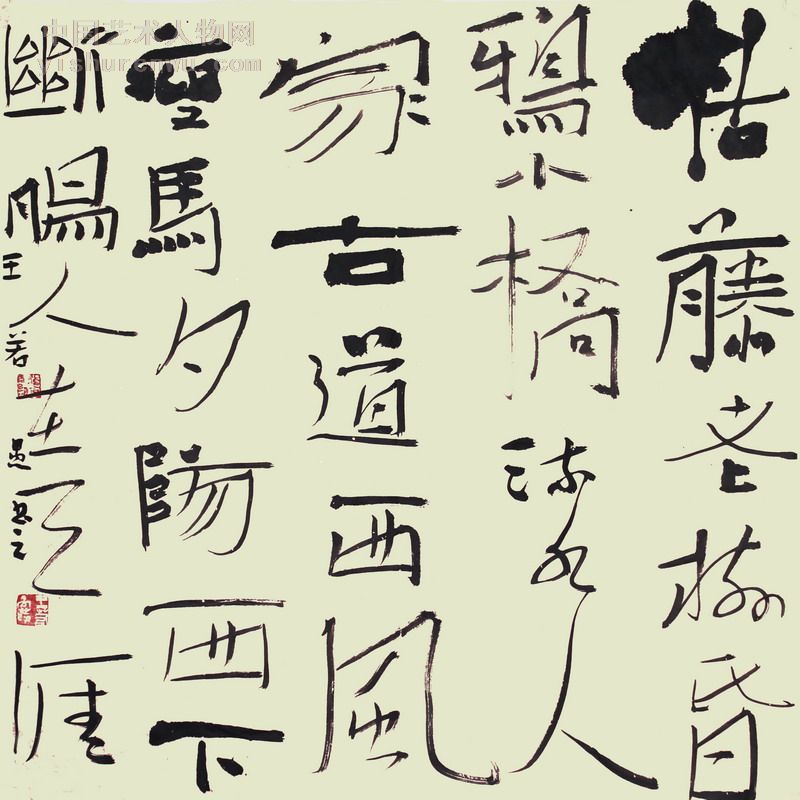 枯藤老樹昏
鴉小橋流水人
家古道西風
瘦馬夕陽西下
斷腸人在天涯
王若愚書之
中国艺术人物网
yishurenwu.com